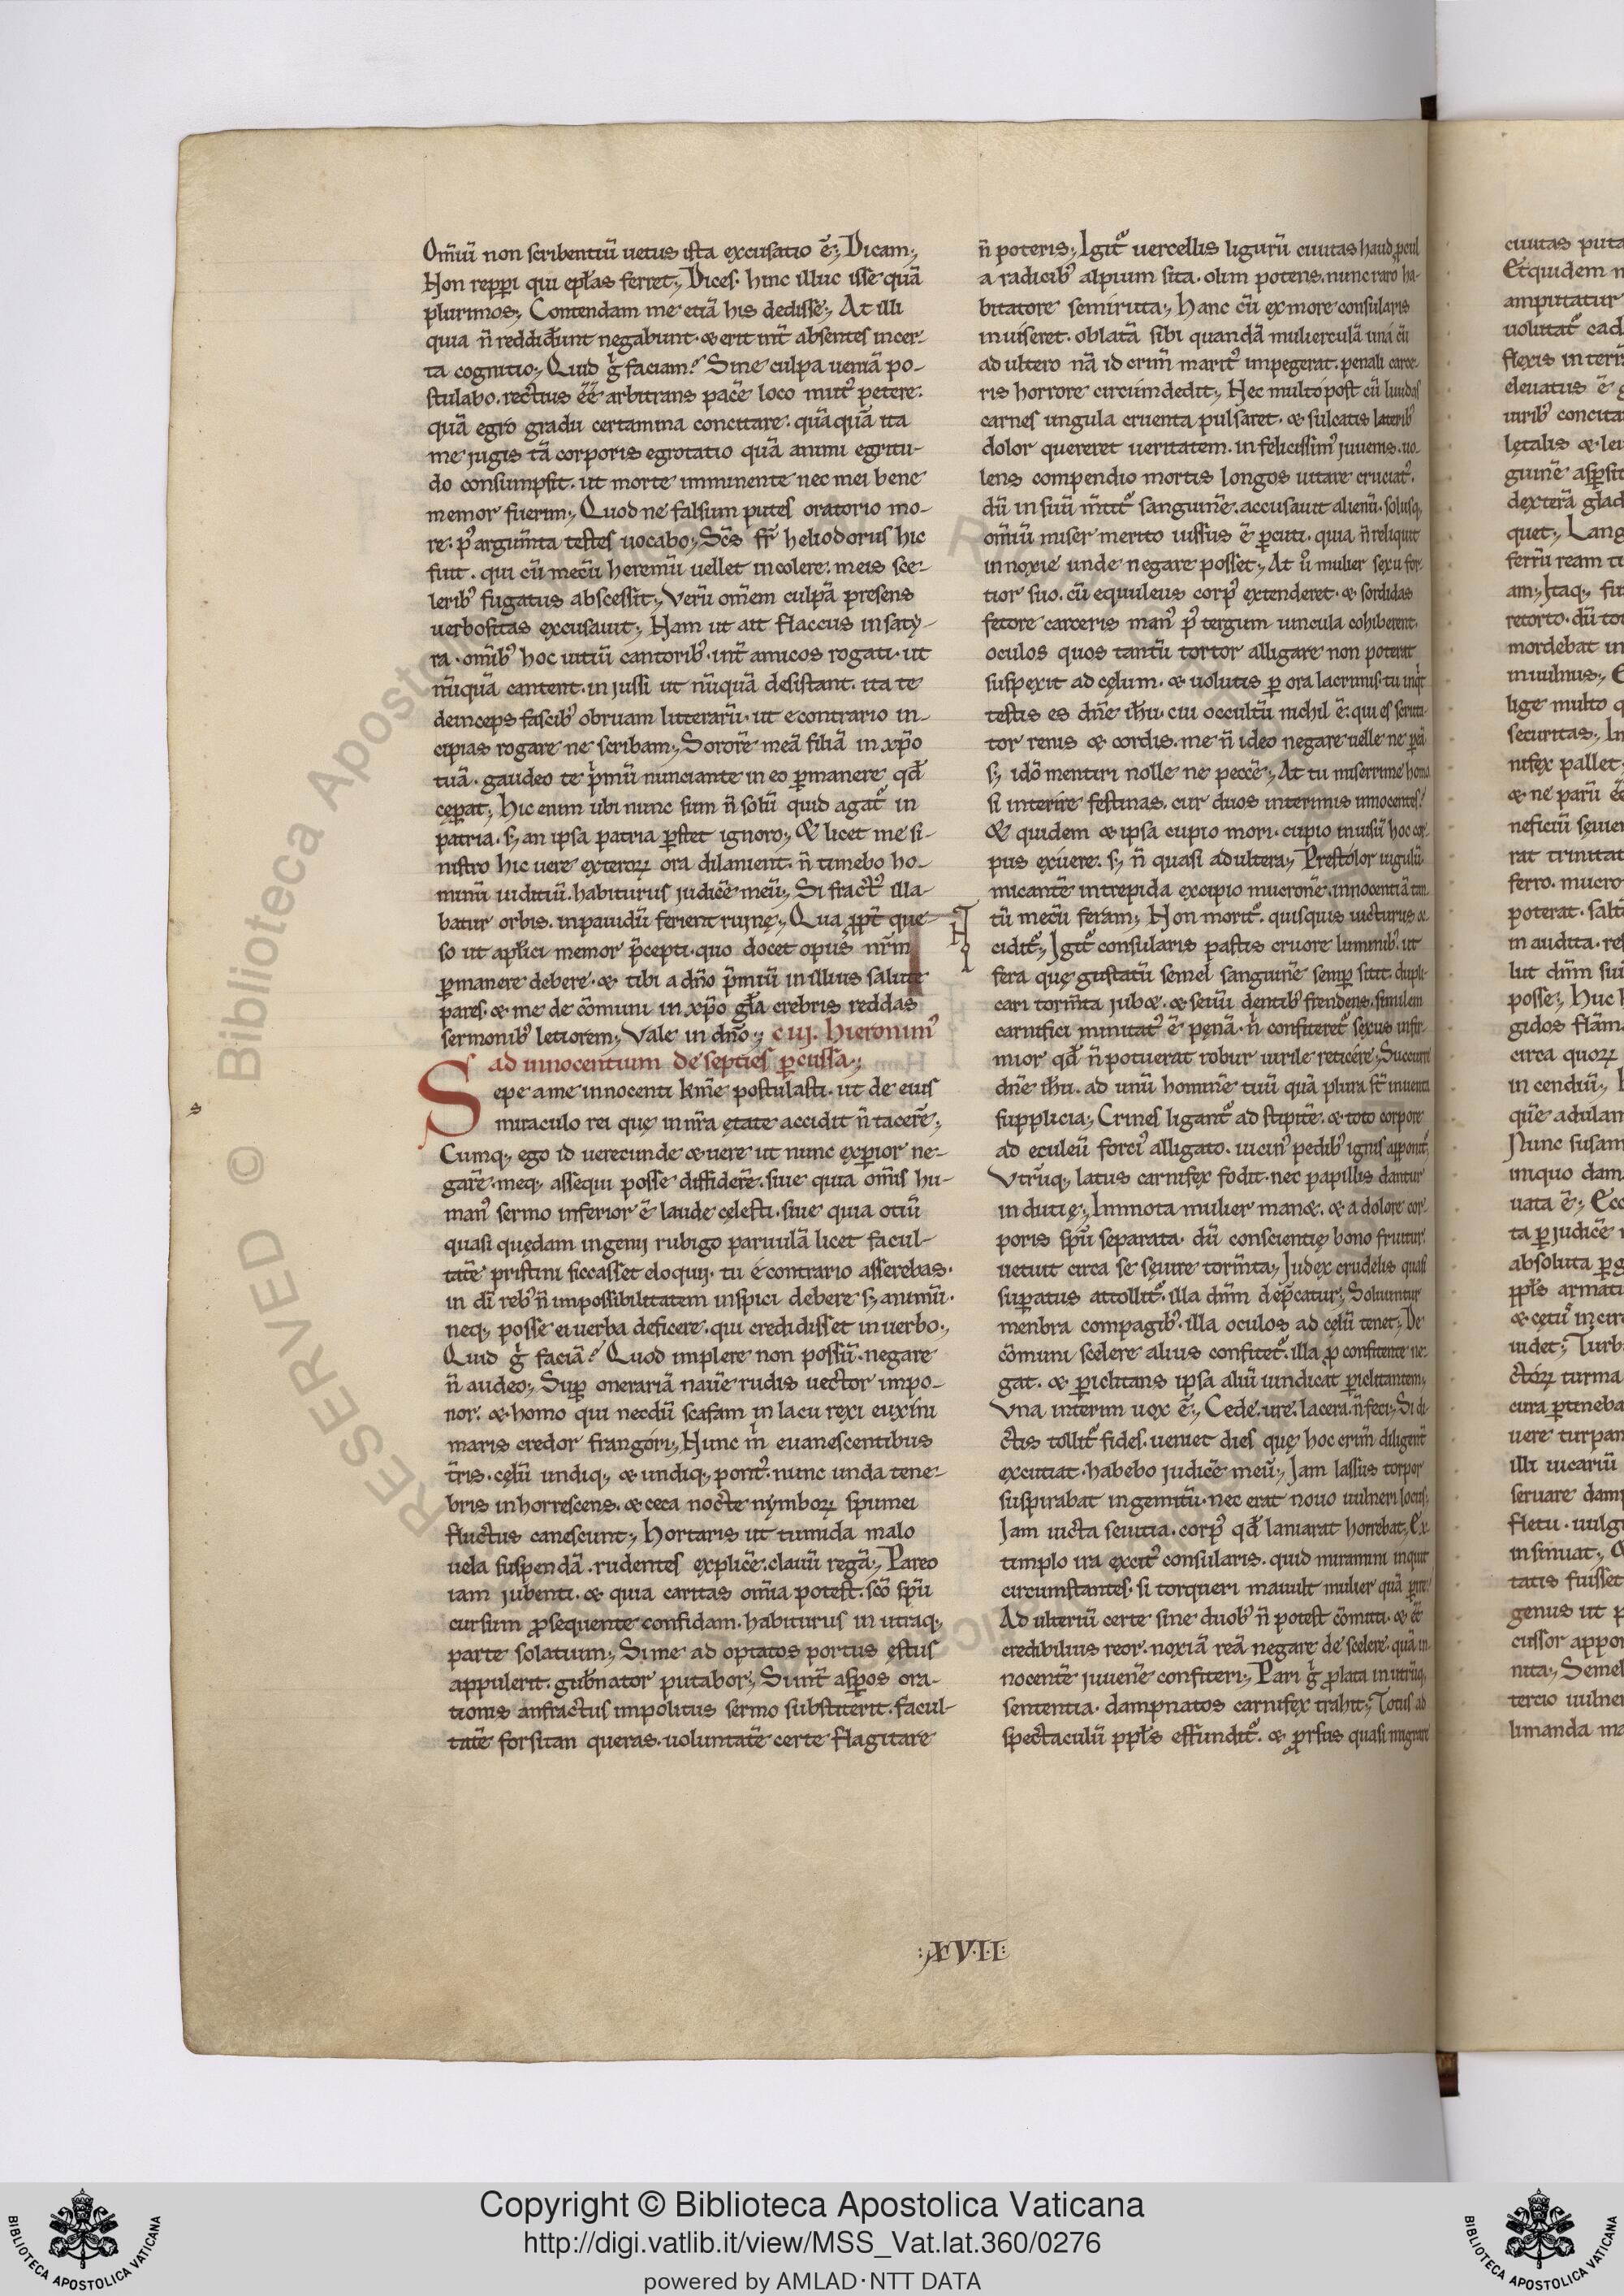 Om̅iu̅ non scribentiu̅ uetus ista excusatio e̅; Dicam;
Non repp̲i qui ep̅las ferret; Dices. hinc illuc isse qua̅
plurimos; Contendam me etia̅ his dedisse; At illi
quia n̅ reddider̅unt negabunt. & erit int̅ absentes incer-
ta cognitio; Quid g̊ faciam? Sine culpa uenia̅ po-
stulabo. rectius e̅e̅ arbitrans pace̅ loco mutꝰ petere.
qua̅ egro gradu certamina concitare. qua̅qua̅ ita
me jugis ta̅ corporis egrotatio qua̅ animi egritu-
do consumpsit. ut morte imminente nec mei bene
memor fuerim; Quod ne falsum putes oratorio mo-
re. pꝰ argum̅ta testes uocabo; Sc̅s fr̅ heliodorus hic
fuit. qui cu̅ mecu̅ heremu̅ uellet incolere. meis sce-
leribꝰ fugatus abscessit; Veru̅ om̅em culpa̅ presens
uerbositas excusauit; Nam ut ait flaccus in saty-
ra. om̅ibꝰ hoc uitiu̅ cantoribꝰ. int̅ amicos rogati. ut
nu̅qua̅ cantent. in jussi ut nu̅qua̅ desistant. ita te
deinceps fascibꝰ obruam litteraru̅. ut econtrario in-
cipias rogare ne scribam; Sorore̅ mea̅ filia̅ in xp̅o
tua̅. gaudeo te p̅mu̅ nunciante in eo ꝑmanere qd̅
cęꝑat; Hic enim ubi nunc sum n̅ solu̅ quid agat᷑ in
patria. s; an ipsa patria ꝑstet ignoro; & licet me si-
nistro hic uere exteroꝝ ora dilanient. n̅ timebo ho-
minu̅ iuditiu̅. habiturus judice̅ meu̅; Si fractꝰ illa-
batur orbis. inpauidu̅ ferient ruinę; Qua ꝓpt̅ que
so ut apl̅ici memor p̅cepti. quo docet opus nr̅m
ꝑmanere debere. & tibi a dn̅o p̅miu̅ in illius salute
pares. & me de co̅muni in xp̅o gl̅a crebris reddas
sermonibꝰ letiorem; Vale in dn̅o; cuj. hieronimꝰ
ad innocentium de septies ꝑcussa;
Sepe a me innocenti km̅e postulasti. ut de eius
miraculo rei quę in nr̅a ętate accidit n̅ tacere̅;
Cumq; ego id uerecunde & uere ut nunc exꝑior ne-
gare̅. meq; assequi posse diffidere̅. siue quia om̅is hu-
manꝰ sermo inferior e̅ laude cęlesti. siue quia otiu̅
quasi quędam ingenij rubigo paruula̅ licet facul-
tate̅ pristini siccasset eloquij. tu e contrario asserebas.
in di̅ rebꝰ n̅ impossibilitatem inspici debere s; animu̅.
neq; posse ei uerba deficere. qui credidisset in uerbo;
Quid g̊ facia̅? Quod implere non possu̅. negare
n̅ audeo; Suꝑ oneraria̅ naue̅ rudis uector impo-
nor. & homo qui necdu̅ scafam in lacu rexi euxini
maris credor fragori; Nunc m̊ euanescentibus
t̅ris. cęlu̅ undiq; & undiq; pontꝰ. nunc unda tene-
bris inhorrescens. & ceca nocte nymboꝝ spumei
fluctus canescunt; Hortaris ut tumida malo
uela suspenda̅. rudentes explice̅. clauu̅ rega̅; Pareo
iam jubenti. & quia caritas om̅ia potest. sc̅o sp̅u
cursum ꝓsequente confidam. habiturus in utraq;
parte solatium; Si me ad optatos portus ęstus
appulerit. gub̅nator putabor; Si int̅ asꝑos ora-
tionis anfractus impolitus sermo substiterit. facul-
tate̅ forsitan queras. uoluntate̅ certe flagitare
n̅ poteris; Igit᷑ uercellis liguru̅ ciuitas haud ꝓcul
a radicibꝰ alpium sita. olim potens. nunc raro ha-
bitatore semiruta; Hanc cu̅ ex more consularis
inuiseret. oblata̅ sibi quanda̅ muliercula̅ una cu̅
adultero na̅ id crim̅ maritꝰ impegerat. penali carce-
ris horrore circumdedit; Nec multo post cu̅ liuidas
carnes ungula cruenta pulsaret. & sulcatis lateribꝰ
dolor quereret ueritatem. infelicissimꝰ juuenis. uo-
lens compendio mortis longos uitare cruciatꝰ.
du̅ in suu̅ m̅tit᷑ sanguine̅. accusauit alienu̅. solusq;
om̅iu̅ miser merito uisus e̅ ꝑcuti. quia n̅ reliquit
innoxie unde negare posset; At ů mulier sexu for-
tior suo. cu̅ equuleus corpꝰ extenderet. & sordidas
fetore carceris manꝰ pꝰ tergum uincula cohiberent.
oculos quos tantu̅ tortor alligare non poterat
suspexit ad cęlum. & uolutis ꝑ ora lacrimis. tu inqt
testis es dn̅e ih̅u. cui occultu̅ nichil e̅. qui es scruta-
tor renis & cordis. me n̅ ideo negare uelle ne ꝑea̅
s; ido̅ mentiri nolle ne pecce̅; At tu miserrime homo
si interire festinas. cur duos interimis innocentes?
& quidem & ipsa cupio mori. cupio inuisu̅ hoc cor-
pus exuere. s; n̅ quasi adultera; Prestolor iugulu̅.
micante̅ intrepida excipio mucrone̅. innocentia̅ tan-
tu̅ mecu̅ feram; Non morit᷑. quisquis uicturus oc-
cidit᷑; Igit᷑ consularis pastis cruore luminibꝰ. ut
fera quę gustatu̅ semel sanguine̅ semꝑ sitit dupli-
cari torm̅ta jub&. & seuu̅ dentibꝰ frendens. similem
carnifici minitatꝰ e̅ pęna̅. n̊ confiteret᷑ sexus infir-
mior qd̅ n̅ potuerat robur uirile reticere; Succurre
dn̅e ih̅u. ad unu̅ homine̅ tuu̅ qua̅ plura st̅ inuenta
supplicia; Crines ligant᷑ ad stipite̅. & toto corpore
ad eculeu̅ forciꝰ alligato. uicinꝰ pedibꝰ ignis apponit᷑;
Vtru̅q; latus carnifex fodit. nec papillis dantur
indutię; Immota mulier man&. & a dolore cor-
poris sp̅u separata. du̅ conscientię bono fruitur.
uetuit circa se sęuire torm̅ta; Iudex crudelis quasi
suꝑatus attollit᷑. illa dn̅m dep̅catur; Soluuntur
menbra compagibꝰ. illa oculos ad cęlu̅ tenet; De
co̅muni scelere alius confitet᷑. illa ꝓ confitente ne-
gat. & ꝑiclitans ipsa aliu̅ uindicat ꝑiclitantem;
Vna interim uox e̅; Cede. ure. lacera. n̅ feci; Si di-
ctis tollit᷑ fides. ueniet dies quę hoc crim̅ diligent̅
excutiat. habebo judice̅ meu̅; Jam lassus torpor
suspirabat in gemitu̅. nec erat nouo uulneri locus;
Jam uicta seuitia. corpꝰ qd̅ laniarat horrebat; Ex-
timplo ira excitꝰ consularis. quid miramini inquit
circumstantes. si torqueri mauult mulier qua̅ ꝑire?
Adulteriu̅ certe sine duobꝰ n̅ potest co̅mitti. & e̅e̅
credibilius reor. noxia̅ rea̅ negare de scelere. qua̅ in-
nocente̅ juuene̅ confiteri; Pari g̊ ꝓlata in utru̅q;
sententia. dampnatos carnifex trahit; Totus ad
spectaculu̅ ppl̅s effundit᷑. & ꝓrsus quasi migrare
:XVII:
ciuitas puta
Et quidem n
amputatur
uolutat᷑ cad
flexis in terra̅
eleuatus e̅ g
uiribꝰ concita
lętalis & le
guine̅ asꝑsit
dextera̅ glad
quet; Lang
ferru̅ ream
am; Itaq;
retorto. du̅ to
mordebat in
inuulnus;
lige multo q
securitas; In
nifex pallet;
& ne paru̅
neficiu̅ sęuie
rat trinitat
ferro. mucro
poterat.
in audita. re
lut dn̅m su
posse; Huc
gidos fla̅m
circa quoꝝ
incendiu̅;
que̅ adulam
Nunc susan
iniquo dam
uata e̅; Ecc
ta ꝑ judice̅
absoluta ꝑ g
ppl̅s armat
& cętu̅ in circ
uidet; Turb
ctoꝝ turma
cura ꝑtineba
uere turpan
illi uicariu̅
seruare dam
fletu. uulg
insinuat;
tatis fuisset
genus ut p
cussor appo
nita; Semel
tercio uulne
limanda ma
Copyright © Biblioteca Apostolica Vaticana
http://digi.vatlib.it/view/MSS_Vat.lat.360/0276
powered by AMLAD·NTT DATA
BIBLIOTECA APOSTOLICA VATICANA
BIBLIOTECA APOSTOLICA VATICANA